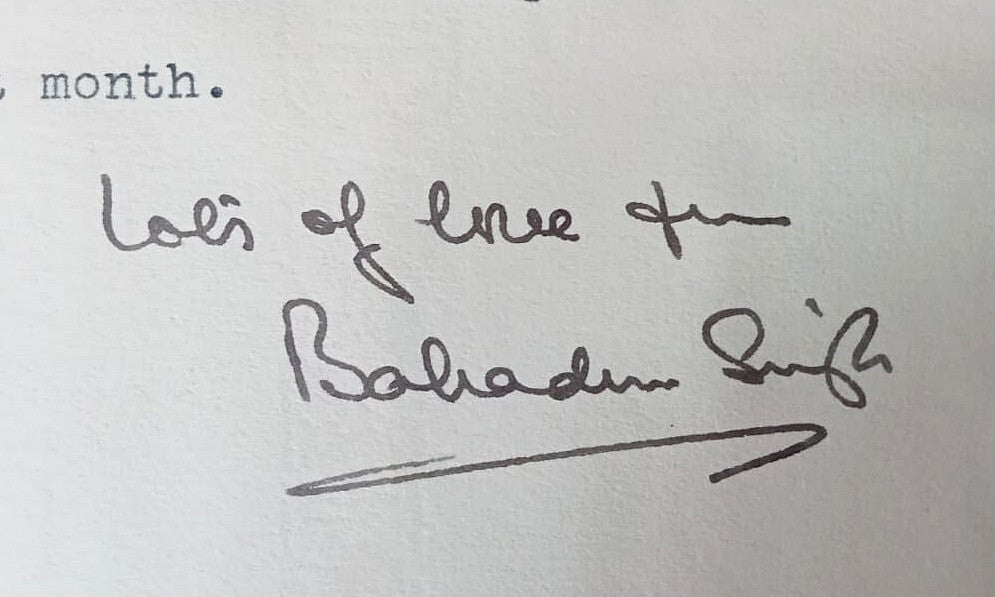 month.
Lots of love from
Bahadur Singh